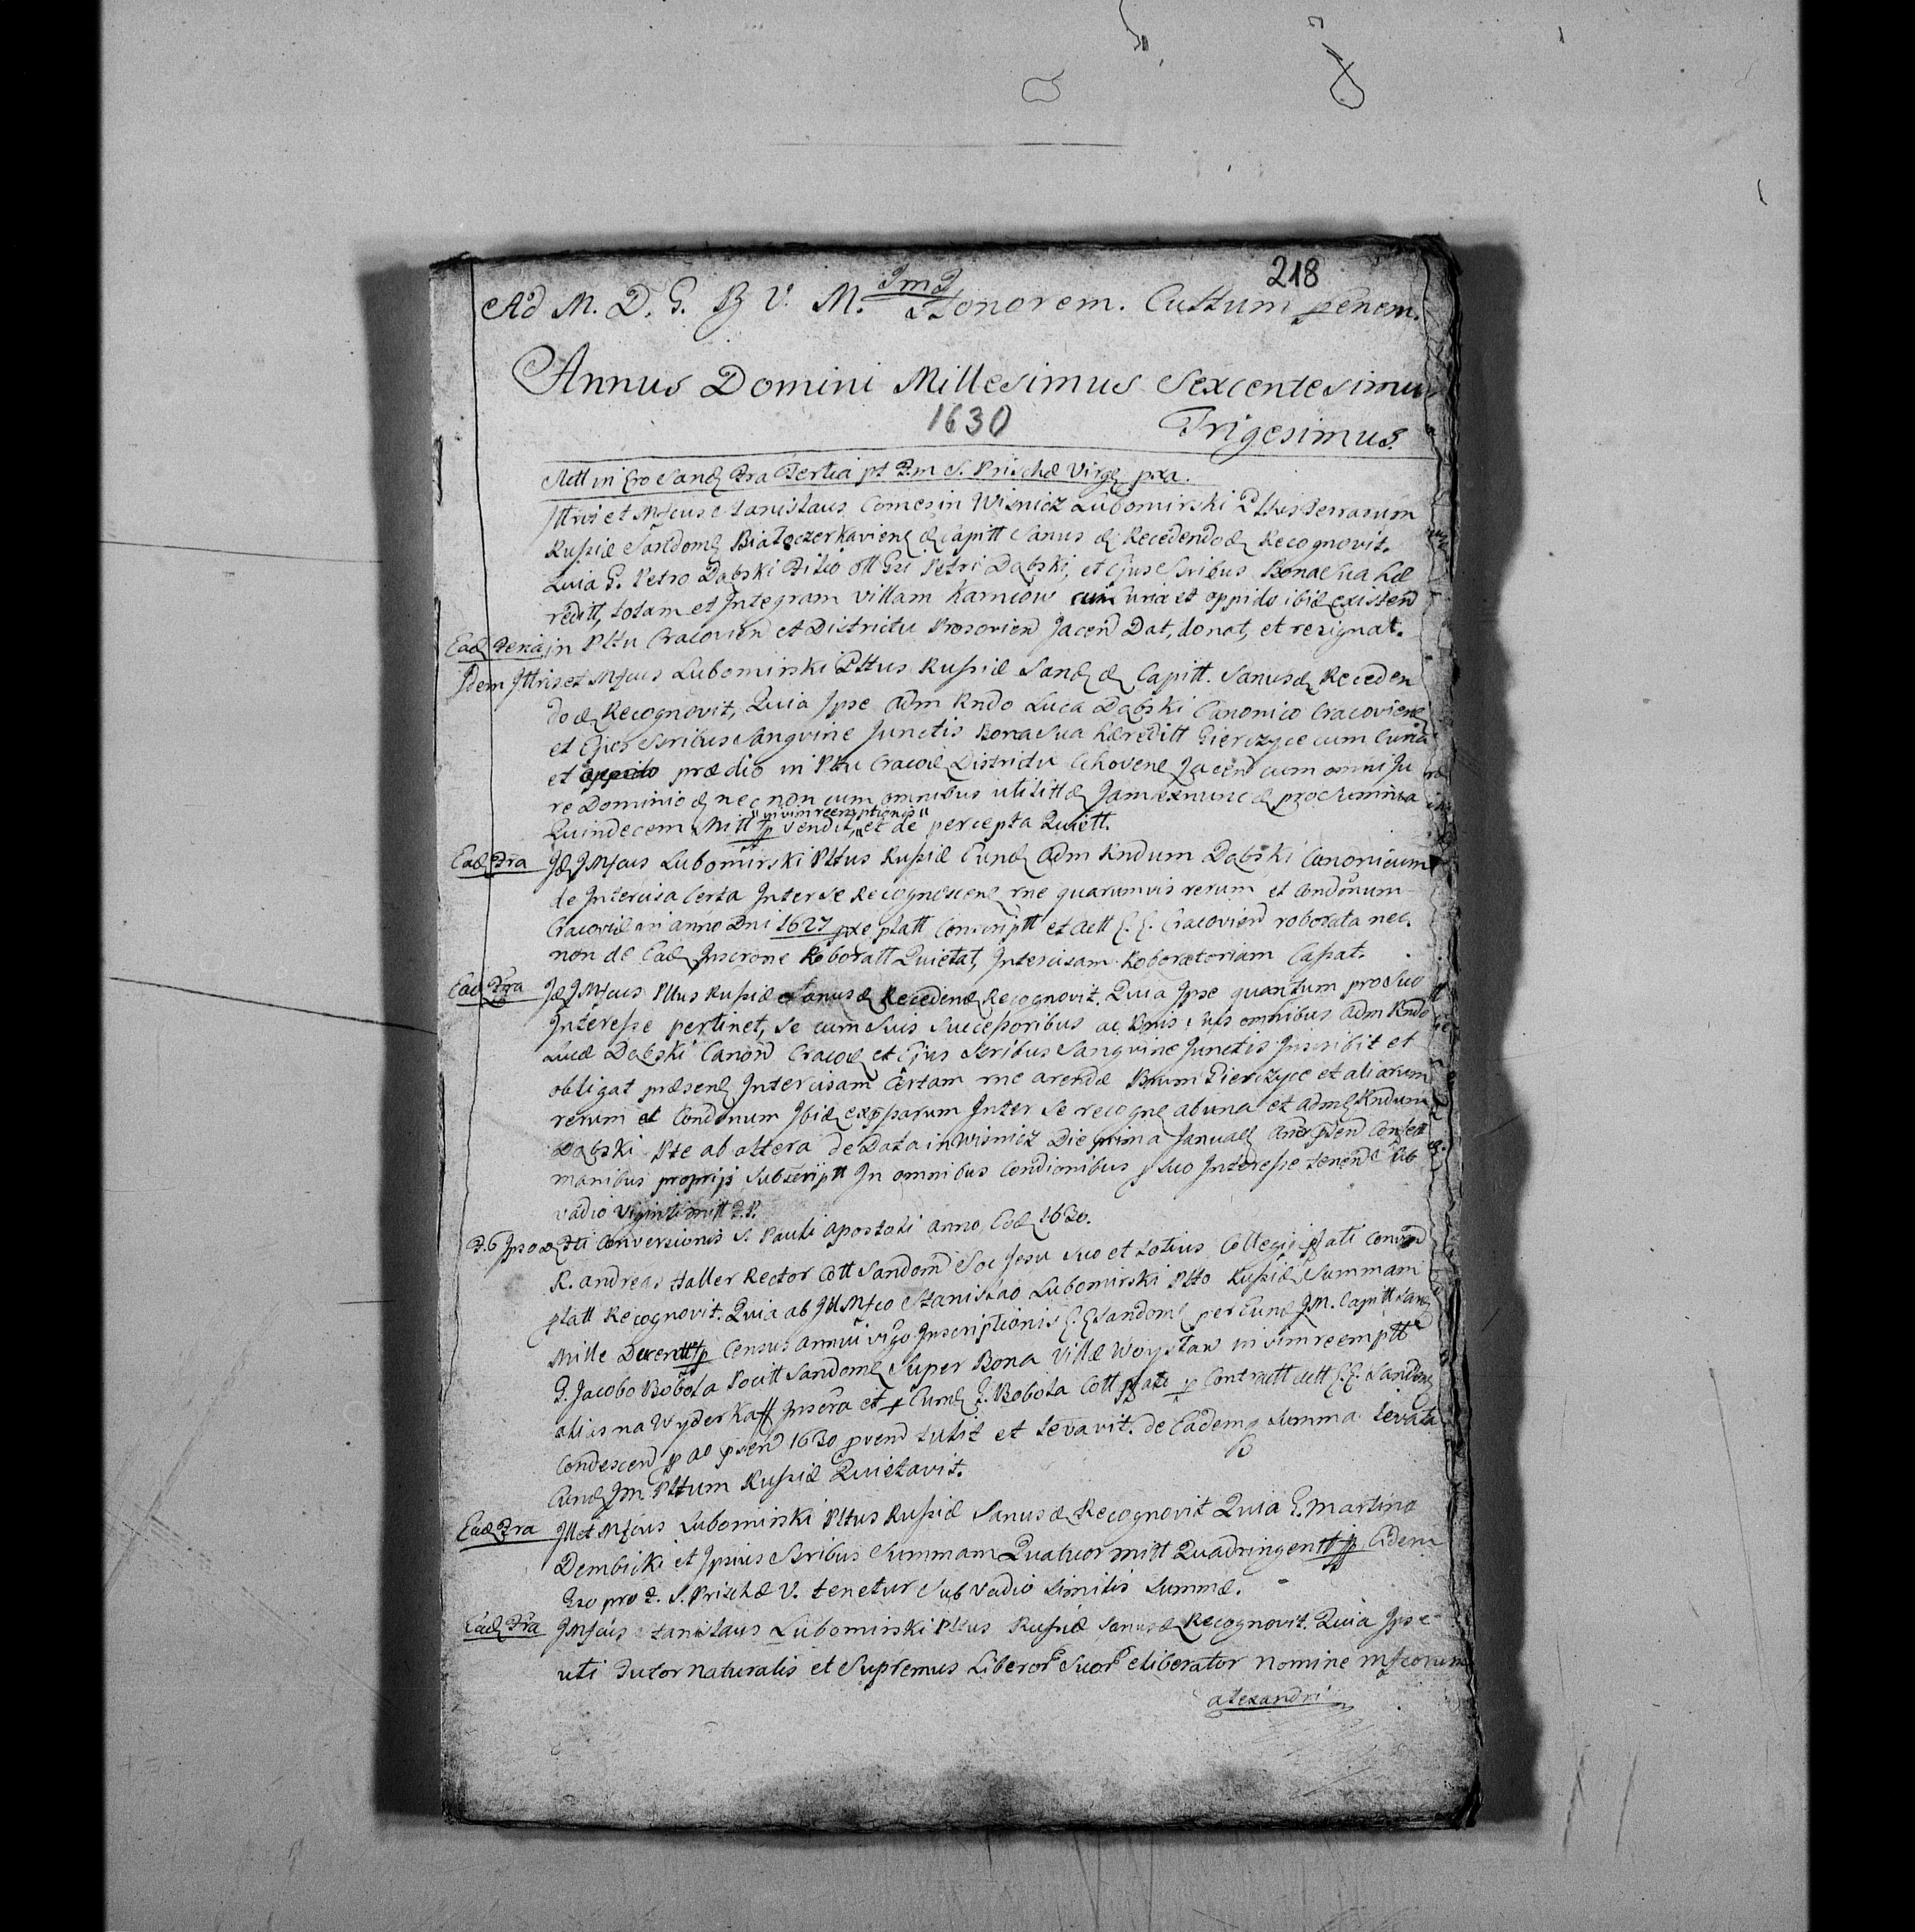 218
Ad M. D. G. B V. M. Imæ Honorem. Cultum penem.
Annus Domini Millesimus Sexcentesimus
1630 Trigesimus.
Actt in Cro Sand Fra Tertia pt F.m S. Priscæ Virg pxa.
Illris et Mfcus Stanislaus Comes in Wisnicz Lubomirski Plttus Terrarum
Russiæ Sandom Białoczerkavien & Capitt Sanus & Recedendo & Recognovit.
Quia G. Petro Dąbski Filio olł Gsi Petri Dąbski, et Ejus Ssribus Bona Sua hæ
reditt, totam et Integram villam Kamiow cum una et oppido ibid existen
Ead Feria in Pltu Cracovien et Districtu Prosovien Jacen Dat, donat, et resignat.
Idem Illris et Mfcus Lubomirski Plttus Russiæ Sand & Capitt. Sanus & Receden
do & Recognovit, Quia Ipse Adm Rndo Luca Dąbski Canonico Cracovien
et Ejus Ssribus Sangvine Junctis Bona Sua hæreditt Gierczyce cum Curia
et oppido prædio in Pltu Cracoviæ Districtu Schoven Jacen cum omni Ju
re Dominio & nec non cum omnibus utilitt & Jam exnunc & pro Summa
"in vim reemptionis"
Quindecem Mill fp vendit, et de percepta Quiett.
Ead Fra Id J Mfcus Lubomirski Plttus Russiæ Eund Adm Rndum Dąbski Canonicum
de Intercisa Certa Inter se Recognoscen rne quarumvis rerum et Condonum
Cracoviæ in anno Dni 1627 pxe platt Conscriptt et Actt C. C. Cracovien roborata nec.
non de Ead Inscrone Roboratt Quietat, Intercisam Roboratoriam Cassat.
Ead Fra Id J Mfcus Plttus Russiæ Sanus & Receden & Recognovit. Quia Ipse quantum pro Suo
Interesse pertinet, se cum Suis Successoribus ac Bnis Suis omnibus Adm Rndo
Lucæ Dąbski Canon Cracov et Ejus Ssribus Sangvine Junctis Inscribit et
obligat præsen Intercisam Certam rne arendæ Bnum Gierczyce et aliarum
rerum et Condonum Ibid expssarum Inter Se recogn ab una et Adm Rndum
Dąbski Pte ab altera de Data in Wisnicz Die prima Januarii Ano psen Confett
manibus proprijs Subscriptt In omnibus Condionibus p Suo Interesse tenen Sub
vadio viginti mill F.P.
F. 6 Ipso & Fti Conversionis S. Pauli Apostoli anno Eod 1630.
R. Andreas Haller Rector Coll Sandom Soc Jesu Suo et totius Collegij pfati Conven
platt Recognovit. Quia ab Ill Mfco Stanislao Lubomirski Pltto Russiæ Summam
Mille Ducentt fp Census Annui vigo Inscriptionis C. C. Sandom per Eund J M. Capitt Sand
G. Jacobo Bobola Pocitt Sandom Super Bona Villæ Woystaw in vim reemptt
alias na Wyderkaff Inscra et p Eund G. Bobola Coll pfati p Contractt Actt C. C. Sandom
Condescen p ao psen 1630 pven tulit et levavit. de Eademq Summa levata
Eund J M. Plttum Russiæ Quietavit.
Ead Fra Ill et Mfcus Lubomirski Plttus Russiæ Sanus & Recognovit Quia G. Martino
Dembicki et Ipsius Ssribus Summam Quatuor mill Quadringentt fp Eidem
Gso pro F. S. Priscæ V. tenetur Sub vadio Similis Summæ.
Ead Fra J Mfcus Stanislaus Lubomirski Plttus Russiæ Sanus & Recognovit. Quia Ipse
uti Tutor naturalis et Supremus Liberor Suor eliberator nomine Mfcorum
Alexandri